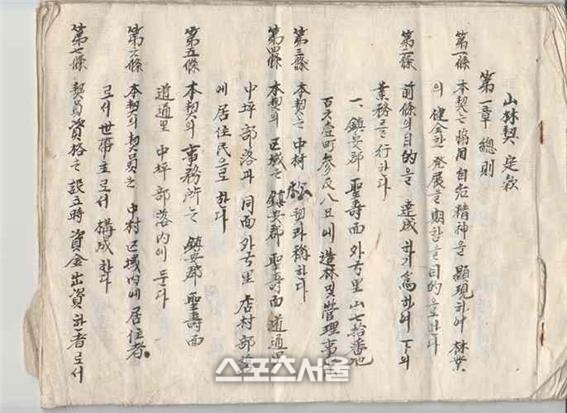 山林契 定款
第一章 總則
第一條 本契는 協同自治精神을 顯現하여 林業
의 健全한 發展을 期함을 目的으로 한다
第二條 前條의 目的을 達成하기 爲하여 下의
業務를 行한다
一. 鎭安郡 聖壽面 外弓里 山七拾番地
百 壹町參反八 에 造林 및 管理事
第三條 本契는 中村 松契라 稱한다
第四條 本契의 区域는 鎭安郡 聖壽面 道通里
中坪部落과 同面 外弓里 店村部落
에 居住民으로 한다
第五條 本契의 事務所는 鎭安郡 聖壽面
道通里 中坪部落內에 둔다
第六條 本契의 契員은 中村区域內에 居住者
로서 世帶主로서 構成한다
第七條 契員資格은 設立時 資金出資한 者로서
스포츠서울